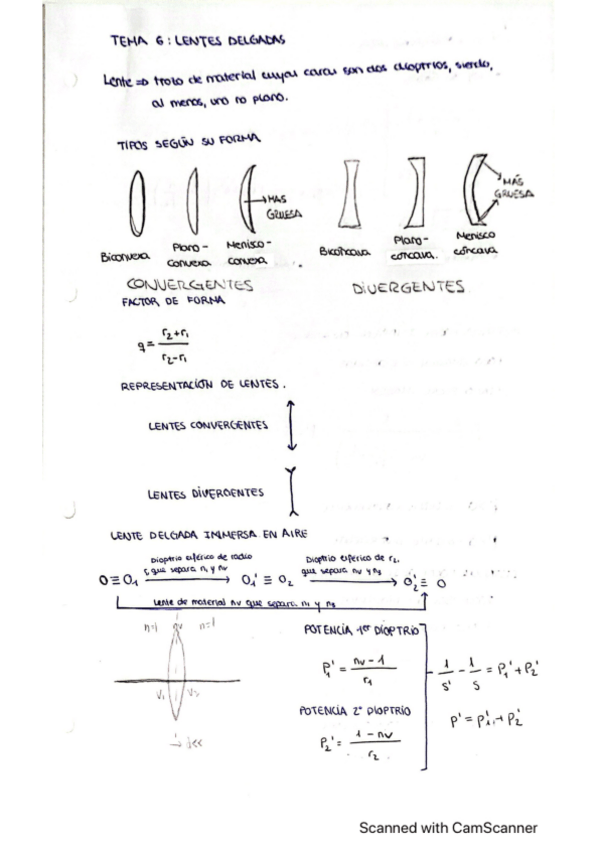 TEMA 6: LENTES DELGADAS
Lente => trozo de material cuyas caras son dos dioptrios, siendo,
al menos, uno no plano.
TIPOS SEGÚN SU FORMA
MÁS GRUESA
MÁS GRUESA
Biconvexa
Plano-convexa
Menisco-convexa
Bicóncava
Plano-cóncava.
Menisco cóncava
CONVERGENTES
DIVERGENTES
FACTOR DE FORMA
q = (r₂+r₁)/(r₂-r₁)
REPRESENTACIÓN DE LENTES.
LENTES CONVERGENTES
LENTES DIVERGENTES
LENTE DELGADA INMERSA EN AIRE
Dioptrio esférico de radio
r₁ que separa n₁ y nv
Dioptrio esférico de r₂
que separa nv y n₃
O ≡ O₁ → O₁' ≡ O₂ → O₂' ≡ O
Lente de material nv que separa n₁ y n₃
n=1 nv n=1
V₁ V₂
POTENCIA 1er DIOPTRIO
P₁' = (nv - 1)/r₁
POTENCIA 2º DIOPTRIO
P₂' = (1 - nv)/r₂
1/s' - 1/s = P₁' + P₂'
P' = P₁' + P₂'
Scanned with CamScanner